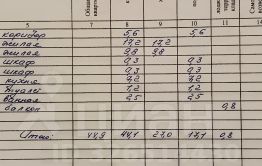 5 7 8 9 10 11
коридор 5,6 5,6
жилая 17,2 17,2
жилая 9,8 9,8
шкаф 0,3 0,3
шкаф 0,3 0,3
кухня 7,2 7,2
туалет 1,2 1,2
ванная 2,5 2,5
балкон 0,8
Итого: 44,9 44,1 27,0 17,1 0,8